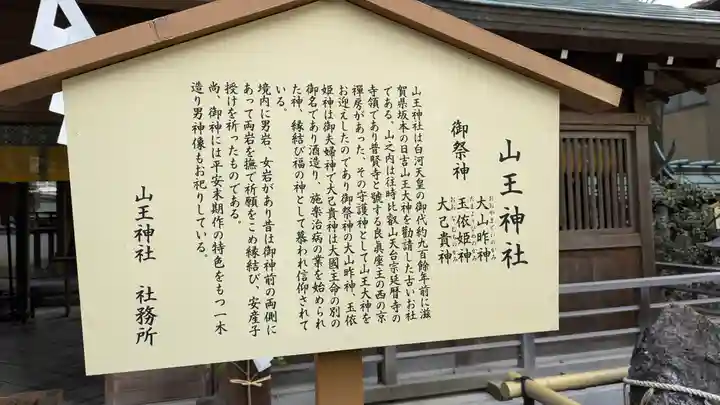 山王神社
御祭神
大山咋神
おおやまぐいのかみ
玉依姫神
たまよりひめのかみ
大己貴神
おおなむちのかみ
山王神社は白河天皇の御代約九百餘年前に滋
賀県坂本の日吉山王大神を勧請した古いお社
である。山之内は往時比叡山天台宗延暦寺の
寺領であり普賢寺と號する良眞座主の西の京
禅房があった、その守護神として山王大神を
お迎えしたのであり御祭神の大山咋神、玉依
姫神は御夫婦神で大己貴神は大國主命の別の
御名であり酒造り、施楽治病の業を始められ
た神、縁結び福の神として慕われ信仰されて
いる。
境内に男岩、女岩があり昔は御神前の両側に
あって両岩を撫で祈願をこめ縁結び、安産子
授けを祈ったものである。
尚、御神には平安末期作の特色をもつ一木
造り男神像もお祀りしている。
山王神社 社務所